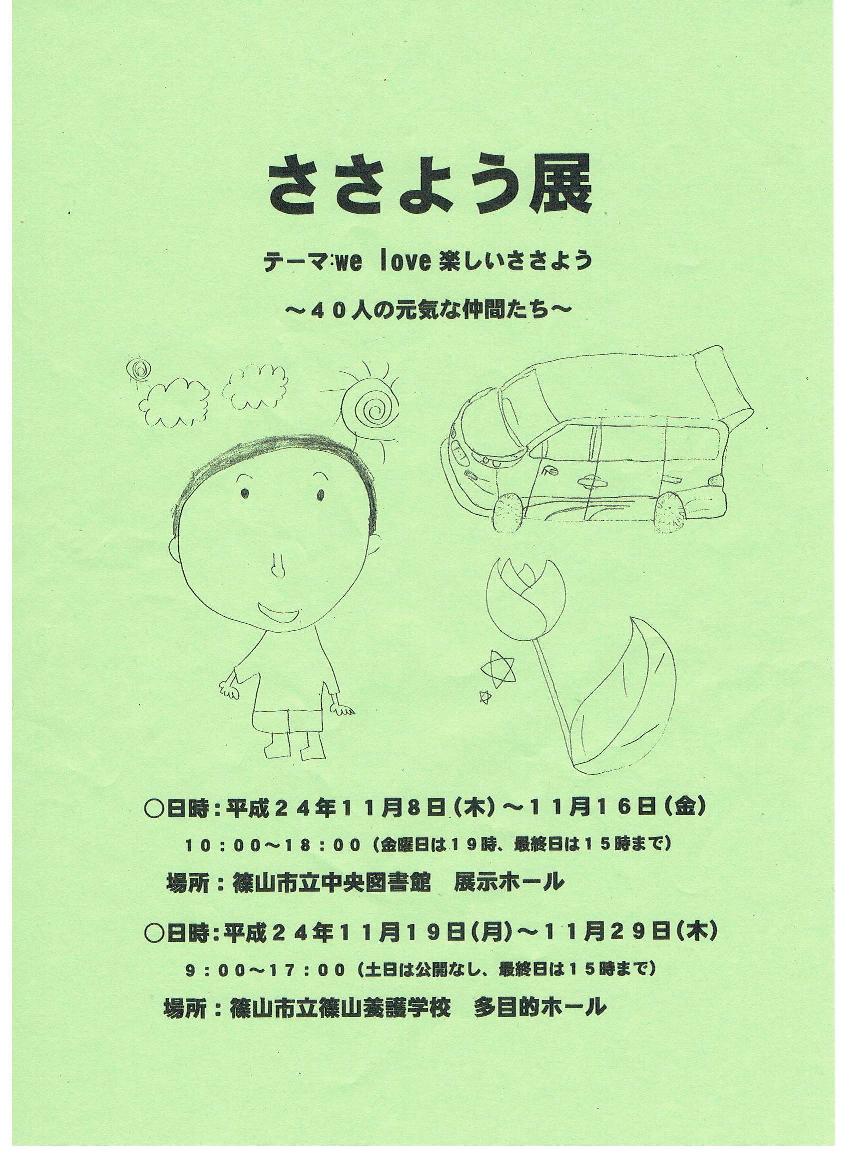 ささよう展
テーマ:we love 楽しいささよう
～４０人の元気な仲間たち～
○日時：平成２４年１１月８日（木）～１１月１６日（金）
１０：００～１８：００（金曜日は１９時、最終日は１５時まで）
場所：篠山市立中央図書館　展示ホール
○日時：平成２４年１１月１９日（月）～１１月２９日（木）
９：００～１７：００（土日は公開なし、最終日は１５時まで）
場所：篠山市立篠山養護学校　多目的ホール